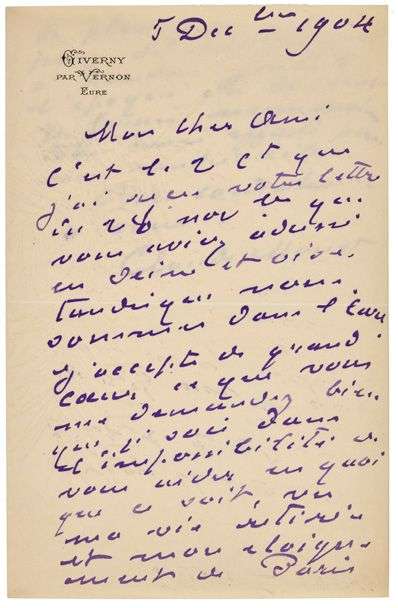 5 Dec bre 1904
GIVERNY
PAR VERNON
EURE
Mon cher ami
C'est le 2 ct que
j'ai reçu votre lettre
du 28 nov bre que
vous aviez adressé
en Seine et Oise
tandis que nous
sommes dans l'Eure
J'accepte de grand
cœur ce que vous
me demandez bien
que je sois dans
l'impossibilité de
vous aider en quoi
que ce soit, vu
ma vie retirée
et mon éloigne-
ment de Paris